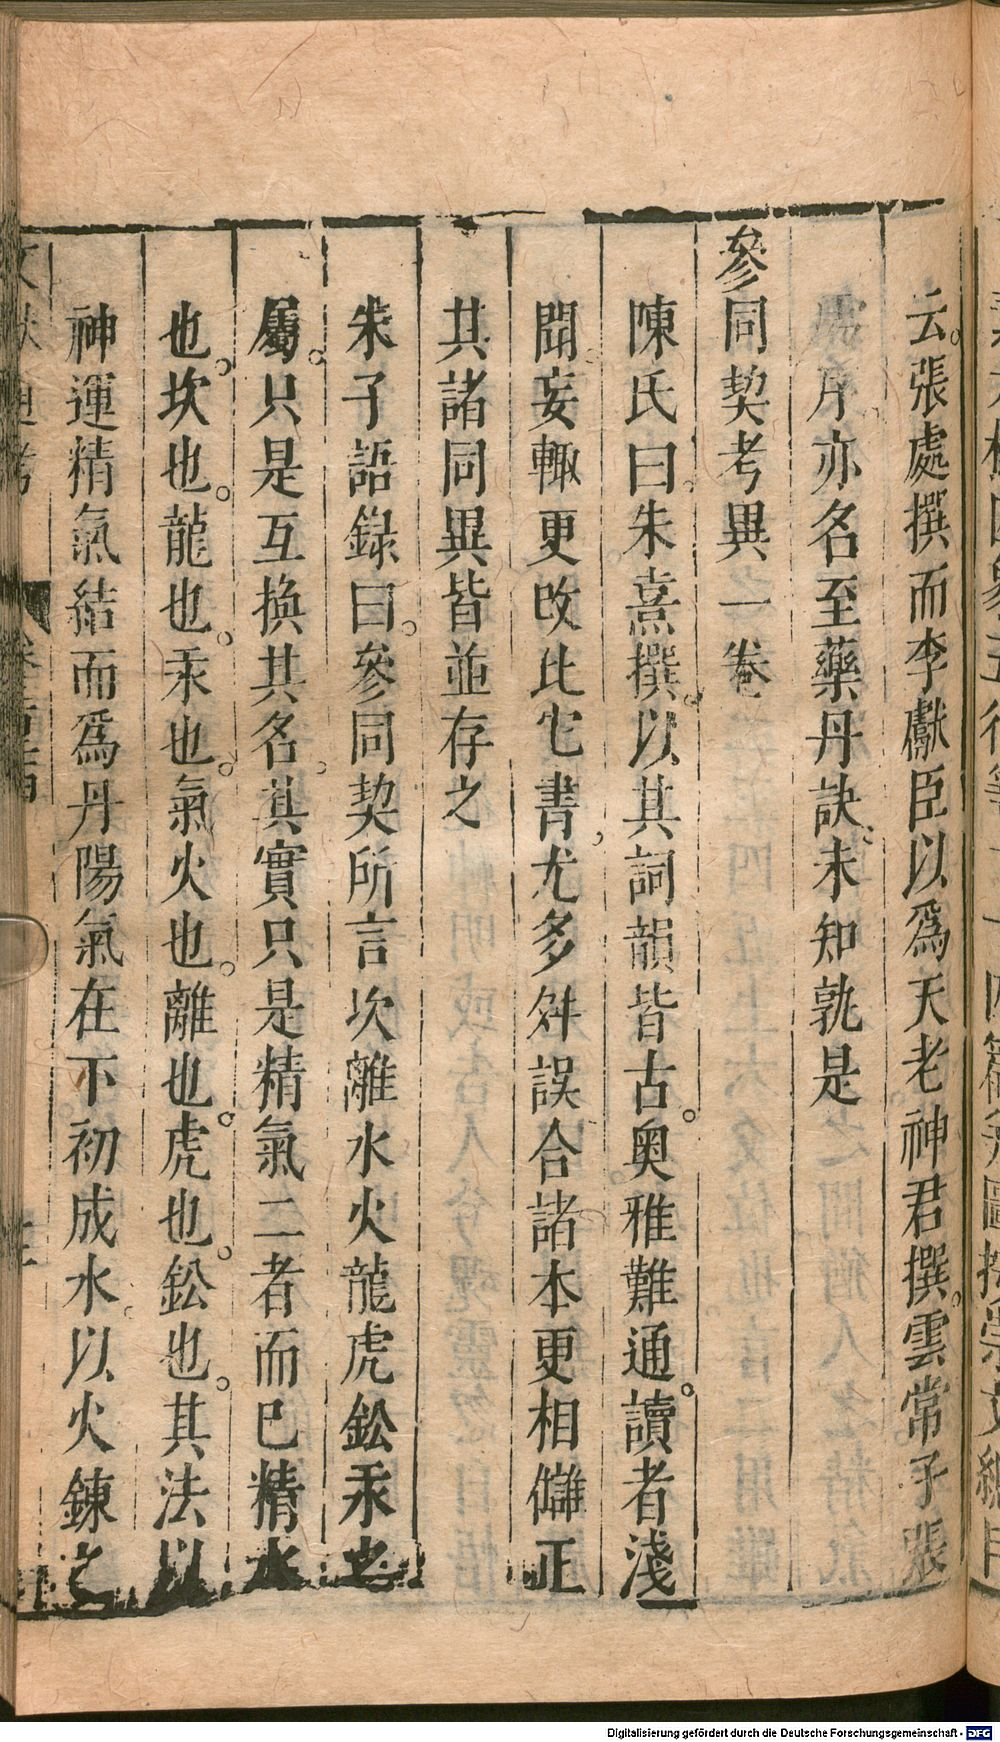 云張處撰而李獻臣以爲天老神君撰雲常子張
處序亦名至藥丹訣未知孰是
參同契考異一卷
陳氏曰朱熹撰以其詞韻皆古奥雅難通讀者淺
聞妄輙更改比它書尤多舛誤合諸本更相讎正
其諸同異皆並存之
朱子語録曰參同契所言坎離水火龍虎鈆汞之
屬只是互換其名其實只是精氣二者而已精水
也坎也龍也汞也氣火也離也虎也鈆也其法以
神運精氣結而爲丹陽氣在下初成水以火鍊之
Digitalisierung gefördert durch die Deutsche Forschungsgemeinschaft - DFG